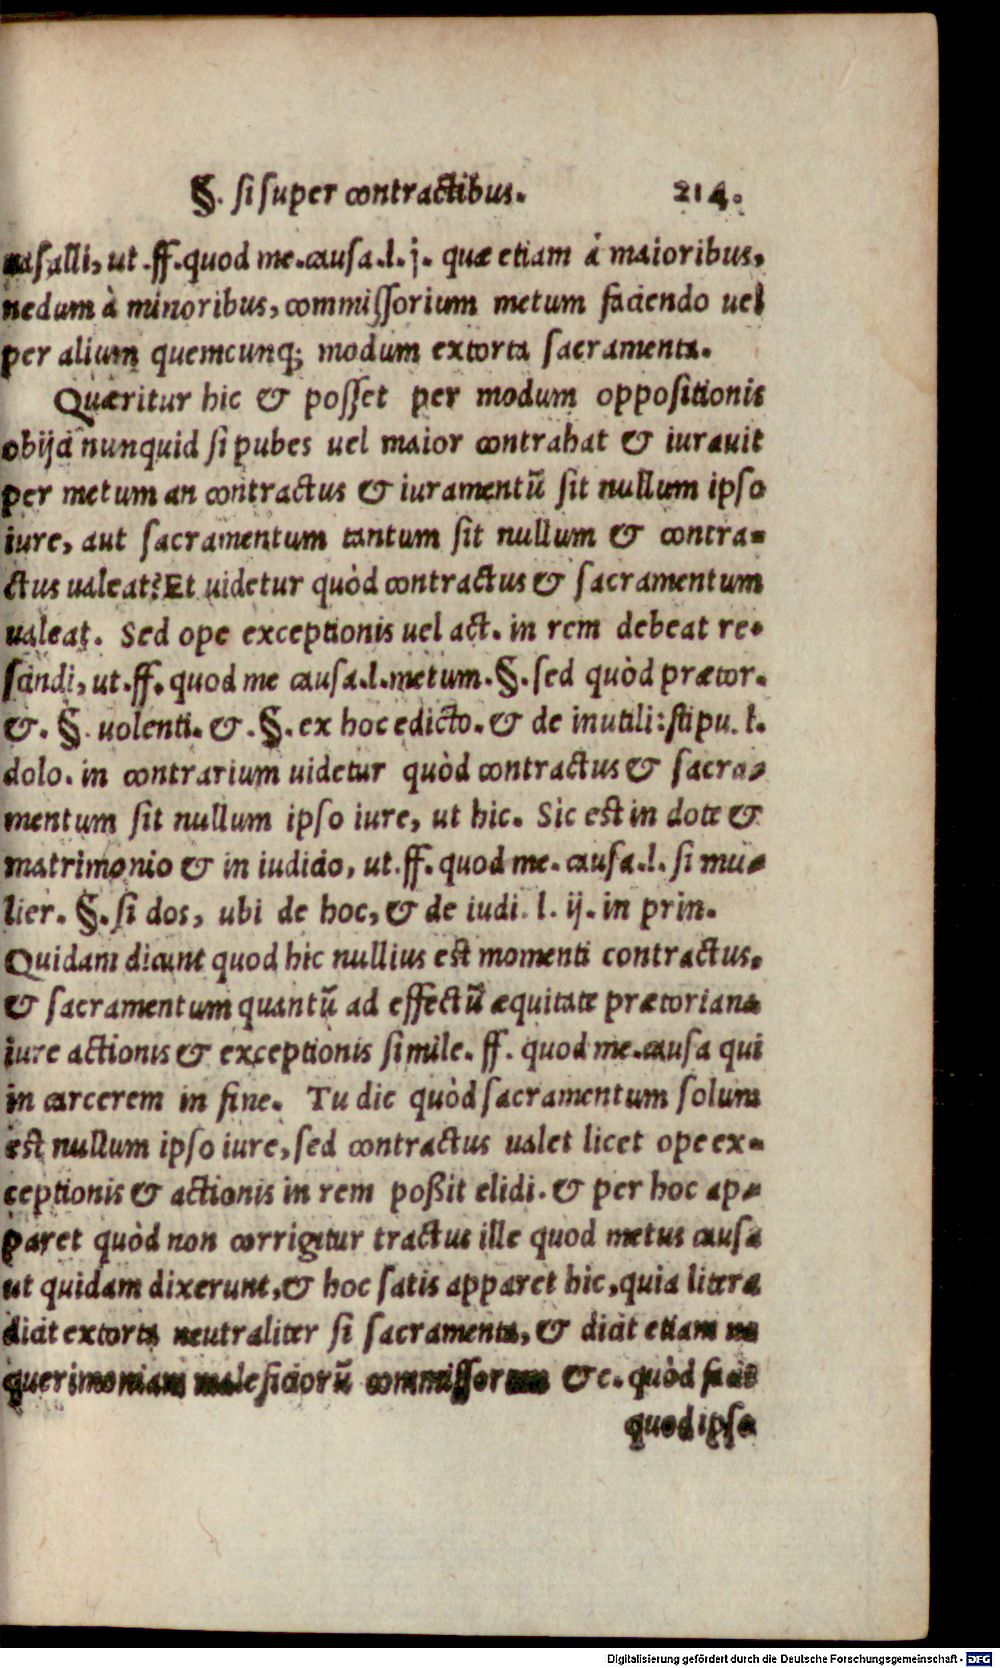 §. si super contractibus. 214.
uasalli, ut .ff. quod me. causa. l. j. quæ etiam à maioribus,
nedum à minoribus, commissorium metum faciendo uel
per alium quemcunq; modum extorta sacramenta.
Quæritur hic & posset per modum oppositionis
obijci nunquid si pubes uel maior contrahat & iurauit
per metum an contractus & iuramentũ sit nullum ipso
iure, aut sacramentum tantum sit nullum & contra-
ctus ualeat? Et uidetur quòd contractus & sacramentum
ualeat. Sed ope exceptionis uel act. in rem debeat re-
scindi, ut .ff. quod me causa. l. metum. §. sed quòd prætor.
&. §. uolenti. &. §. ex hoc edicto. & de inutili: stipu. l.
dolo. in contrarium uidetur quòd contractus & sacra-
mentum sit nullum ipso iure, ut hic. Sic est in dote &
matrimonio & in iudicio, ut .ff. quod me. causa. l. si mu-
lier. §. si dos, ubi de hoc, & de iudi. l. ij. in prin.
Quidam dicunt quod hic nullius est momenti contractus.
& sacramentum quantũ ad effectũ æquitate prætoriana
iure actionis & exceptionis simile. ff. quod me. causa qui
in carcerem in fine. Tu dic quòd sacramentum solum
est nullum ipso iure, sed contractus ualet licet ope ex-
ceptionis & actionis in rem poßit elidi. & per hoc ap-
paret quòd non corrigitur tractus ille quod metus causa
ut quidam dixerunt, & hoc satis apparet hic, quia litera
dicit extorta neutraliter si sacramenta, & dicit etiam
querimoniam maleficiorũ commissorum &c. quòd facit
quod ipso
Digitalisierung gefördert durch die Deutsche Forschungsgemeinschaft - DFG